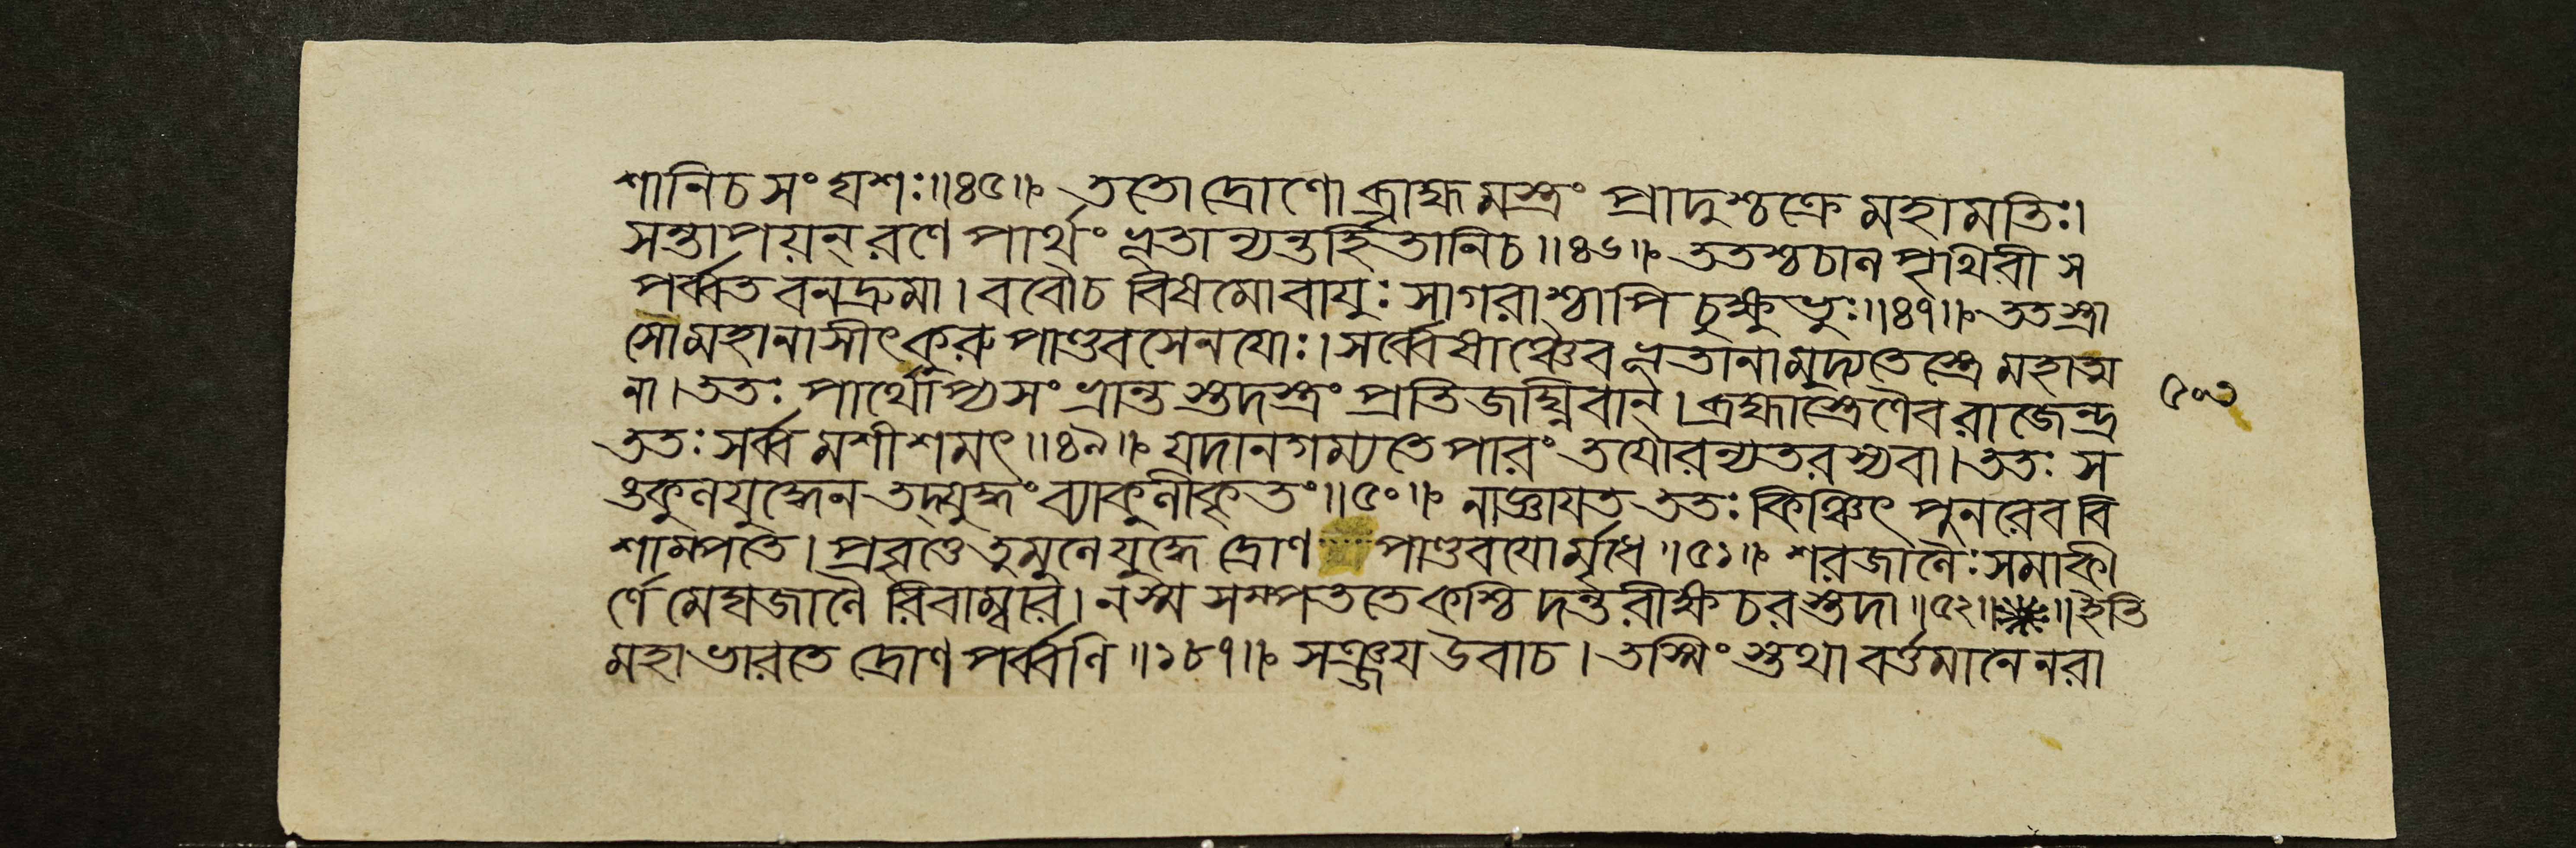 শানিচসংঘশঃ॥৪৫॥ ততোদ্রোণোব্রাহ্মমস্ত্রং প্রাদুশ্চক্রেমহামতিঃ।
সন্তাপয়ন্‌রণেপার্থং ভূতান্যন্তর্হিতানিচ॥৪৬॥ ততশ্চচালপৃথিবী স
পর্ব্বতবনদ্রুমা। ববৌচ বিষমোবায়ুঃ সাগরাশ্চাপি চুক্ষুভুঃ॥৪৭॥ ততস্ত্রা
সোমহানাসীৎকুরুপাণ্ডবসেনয়োঃ। সর্ব্বেষাঞ্চৈবভূতানামুদ্যতেস্ত্রেমহাত্ম
না। ততঃ পার্থোপ্যসংভ্রান্তস্তদস্ত্রং প্রতিজঘ্নিবান্‌। ব্রহ্মাস্ত্রেণৈবরাজেন্দ্র
৫০৩
ততঃসর্ব্বমশীশমৎ॥৪৯॥ যদানগম্যতেপারং তয়োরন্যতরস্যবা। ততঃ স
ঙ্কুলযুদ্ধেনতদ্‌যুদ্ধং ব্যাকুলীকৃতং॥৫০॥ নাজ্ঞায়ত ততঃ কিঞ্চিৎ পুনরেববি
শাম্পতে। প্রবৃত্তেতুমুলেযুদ্ধে দ্রোণ পাণ্ডবয়োর্মৃধে॥৫১॥ শরজালৈঃসমাকী
র্ণে মেঘজালৈরিবাম্বরে। নস্ম সম্পততেকশ্চিদন্তরীক্ষচরস্তদা॥৫২॥ ॥ইতি
মহাভারতে দ্রোণপর্ব্বণি॥১৮৭॥ সঞ্জয়উবাচ। তস্মিংস্তথাবর্ত্তমানেনরা